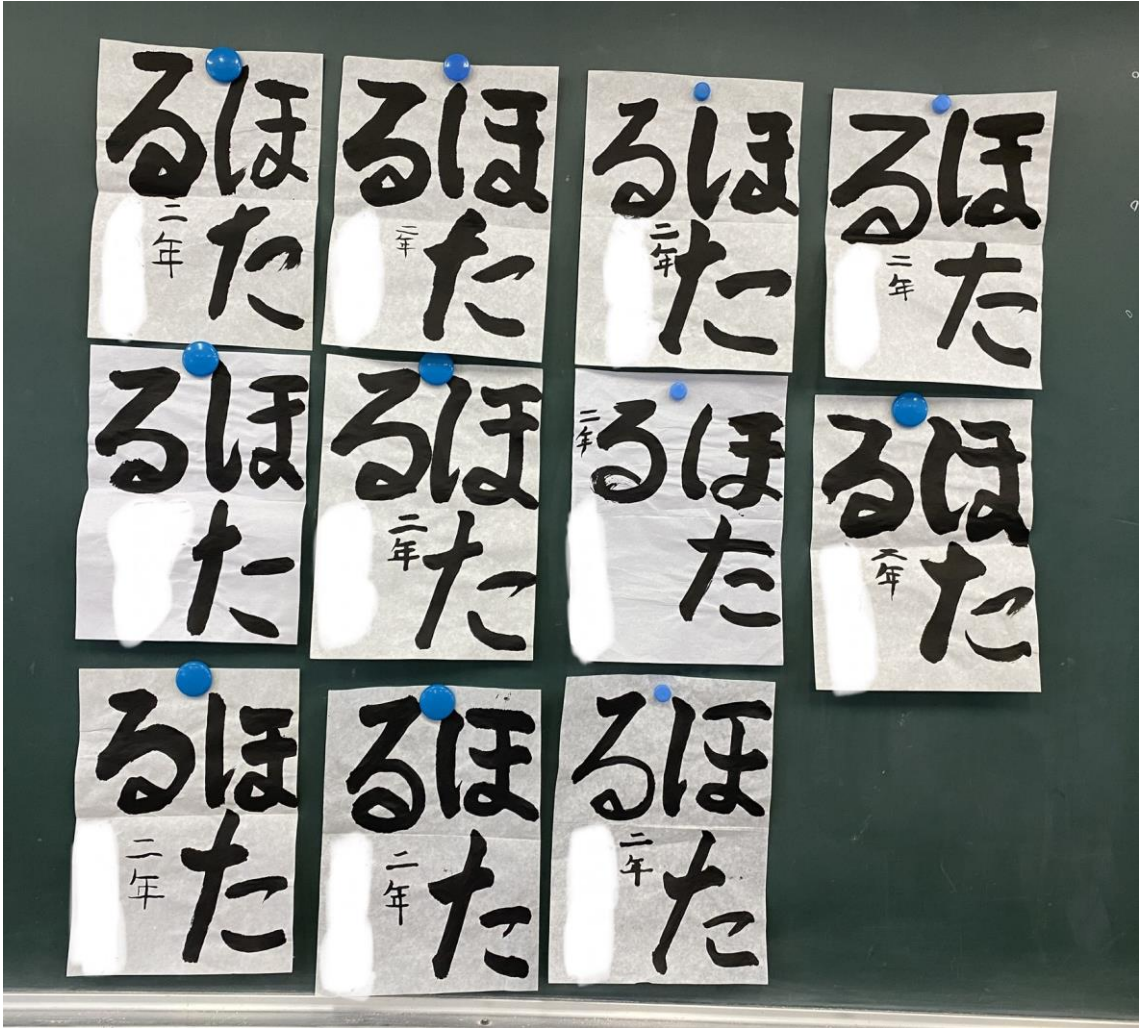 ほた
る
二年
ほた
る
二年
ほた
る
二年
ほた
る
二年
ほた
る
ほた
る
二年
ほた
る
二年
ほた
る
二年
ほた
る
二年
ほた
る
二年
ほた
る
二年